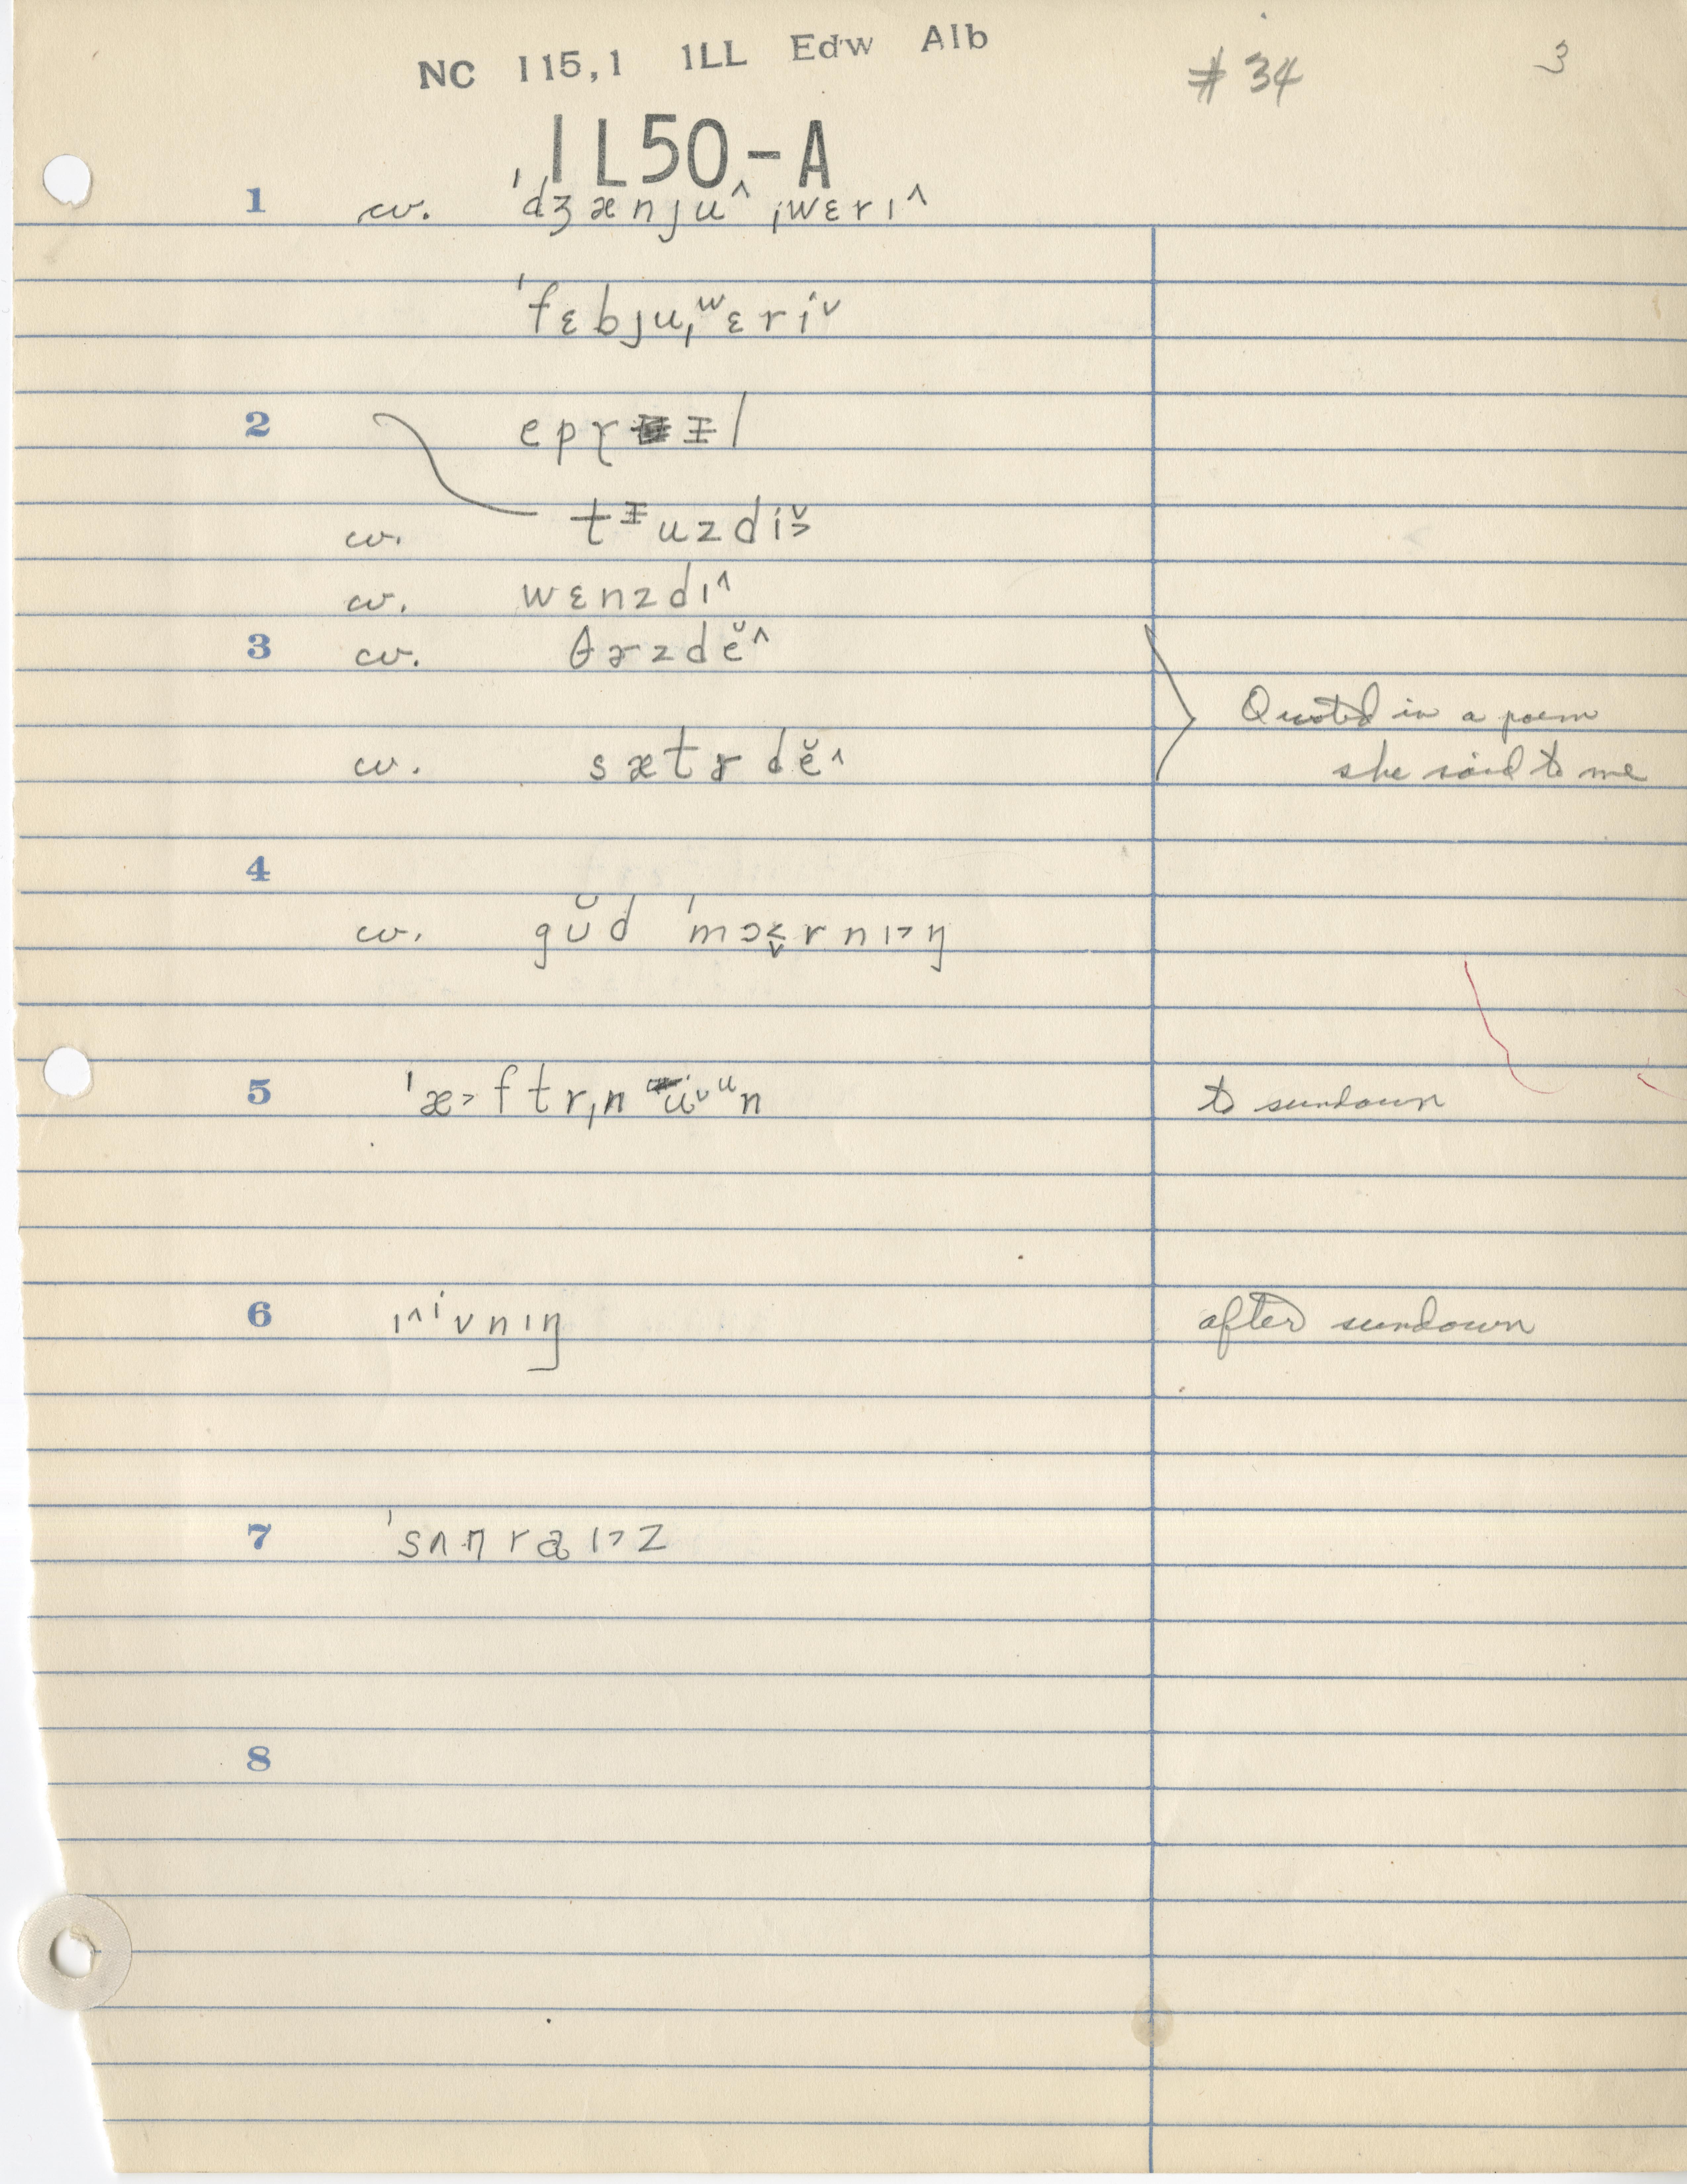 NC 115,1 1LL Edw Alb
# 34 3
1L50-A
1 cv. ˈdʒænju^ ˌwɛrɪ^
ˈfɛbjuˌʷɛriˇ
2 eprɨl
cv. tᶤuzdĭ̯>
cv. wɛnzdɪ^
3 cv. θɚzdĕ^
Quoted in a poem
cv. sætɚdĕ^
she said to me
4
cv. gʊ̆d ˈmɔrnɪ>ŋ
5 ˈæ>ftrˌnʉˇᵘn to sundown
6 ɪ^ⁱvnɪŋ after sundown
7 ˈsʌnraɪ>z
8